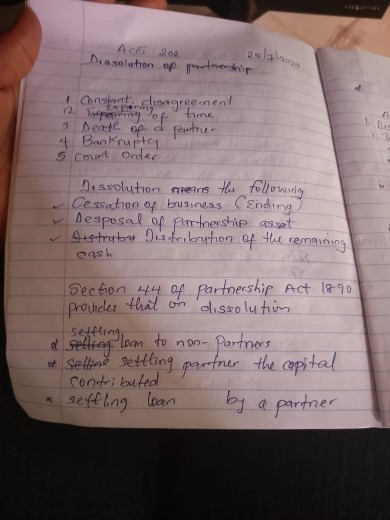 ACCT 202
25/7/2024
Dissolution of partnership
1 Constant disagreement
2 Expiring of time
3 Death of a partner
4 Bankruptcy
5 Court Order
Dissolution means the following
✓ Cessation of business (Ending
✓ Desposal of partnership asset
✓ Distribution of the remaining
cash
Section 44 of partnership Act 1890
provides that on dissolution
settling
loan to non-partners
settling partner the capital
contributed
* settling loan by a partner